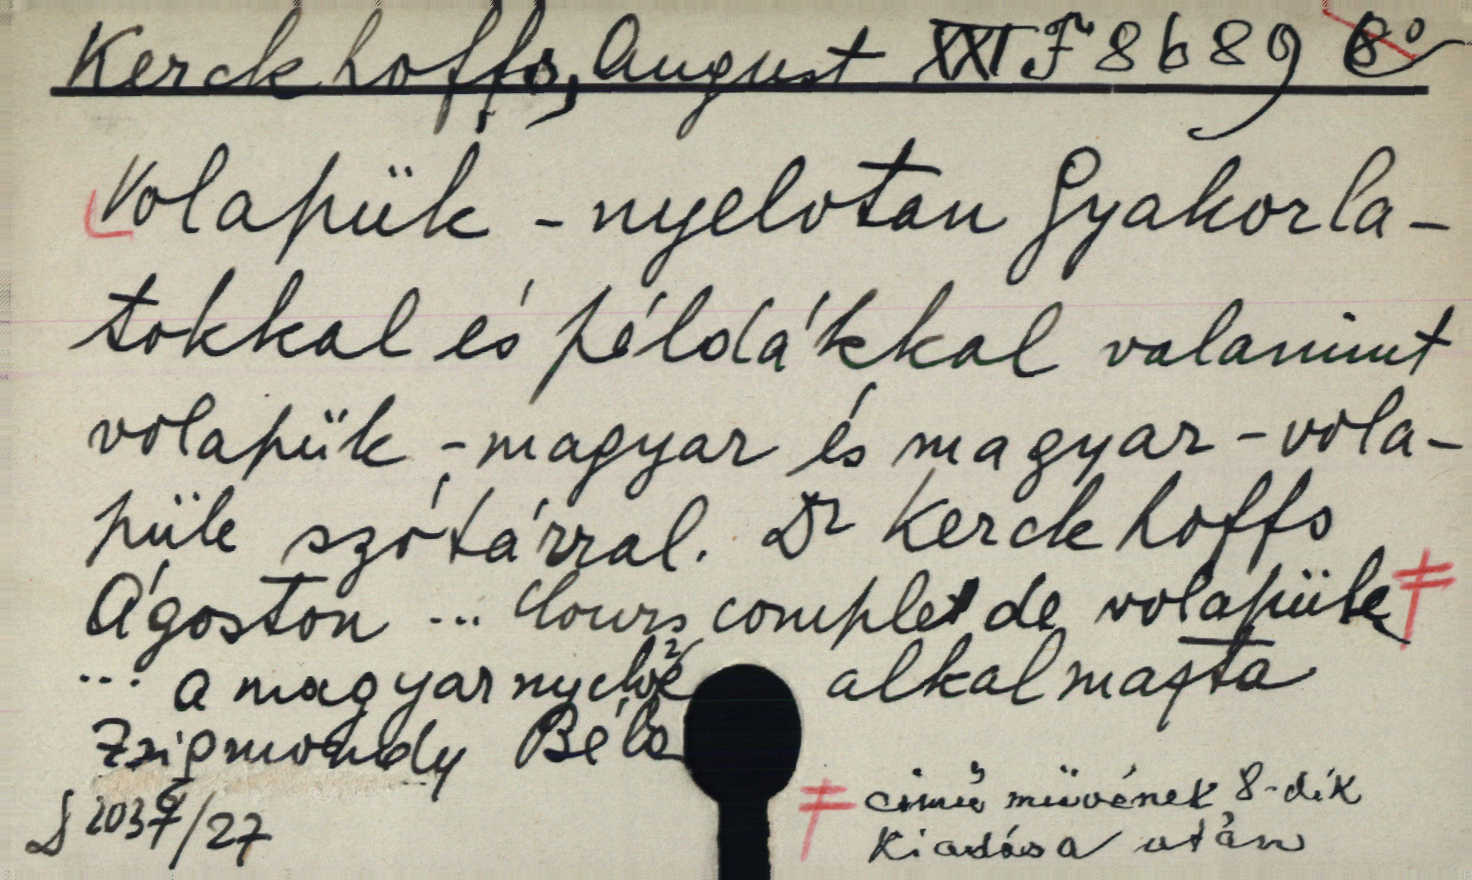 Kerckhoffs, August XXI F 8689 8°
Volapük - nyelvtan Gyakorla-
tokkal és példákkal valamint
volapük - magyar és magyar - vola-
pük szótárral. Dr Kerckhoffs
Ágoston ... Cours complet de volapük ǂ
... a magyar nyelvre alkalmazta
Zsigmondy Béla
ǂ című művének 8-dik
kiadása után
2037/27